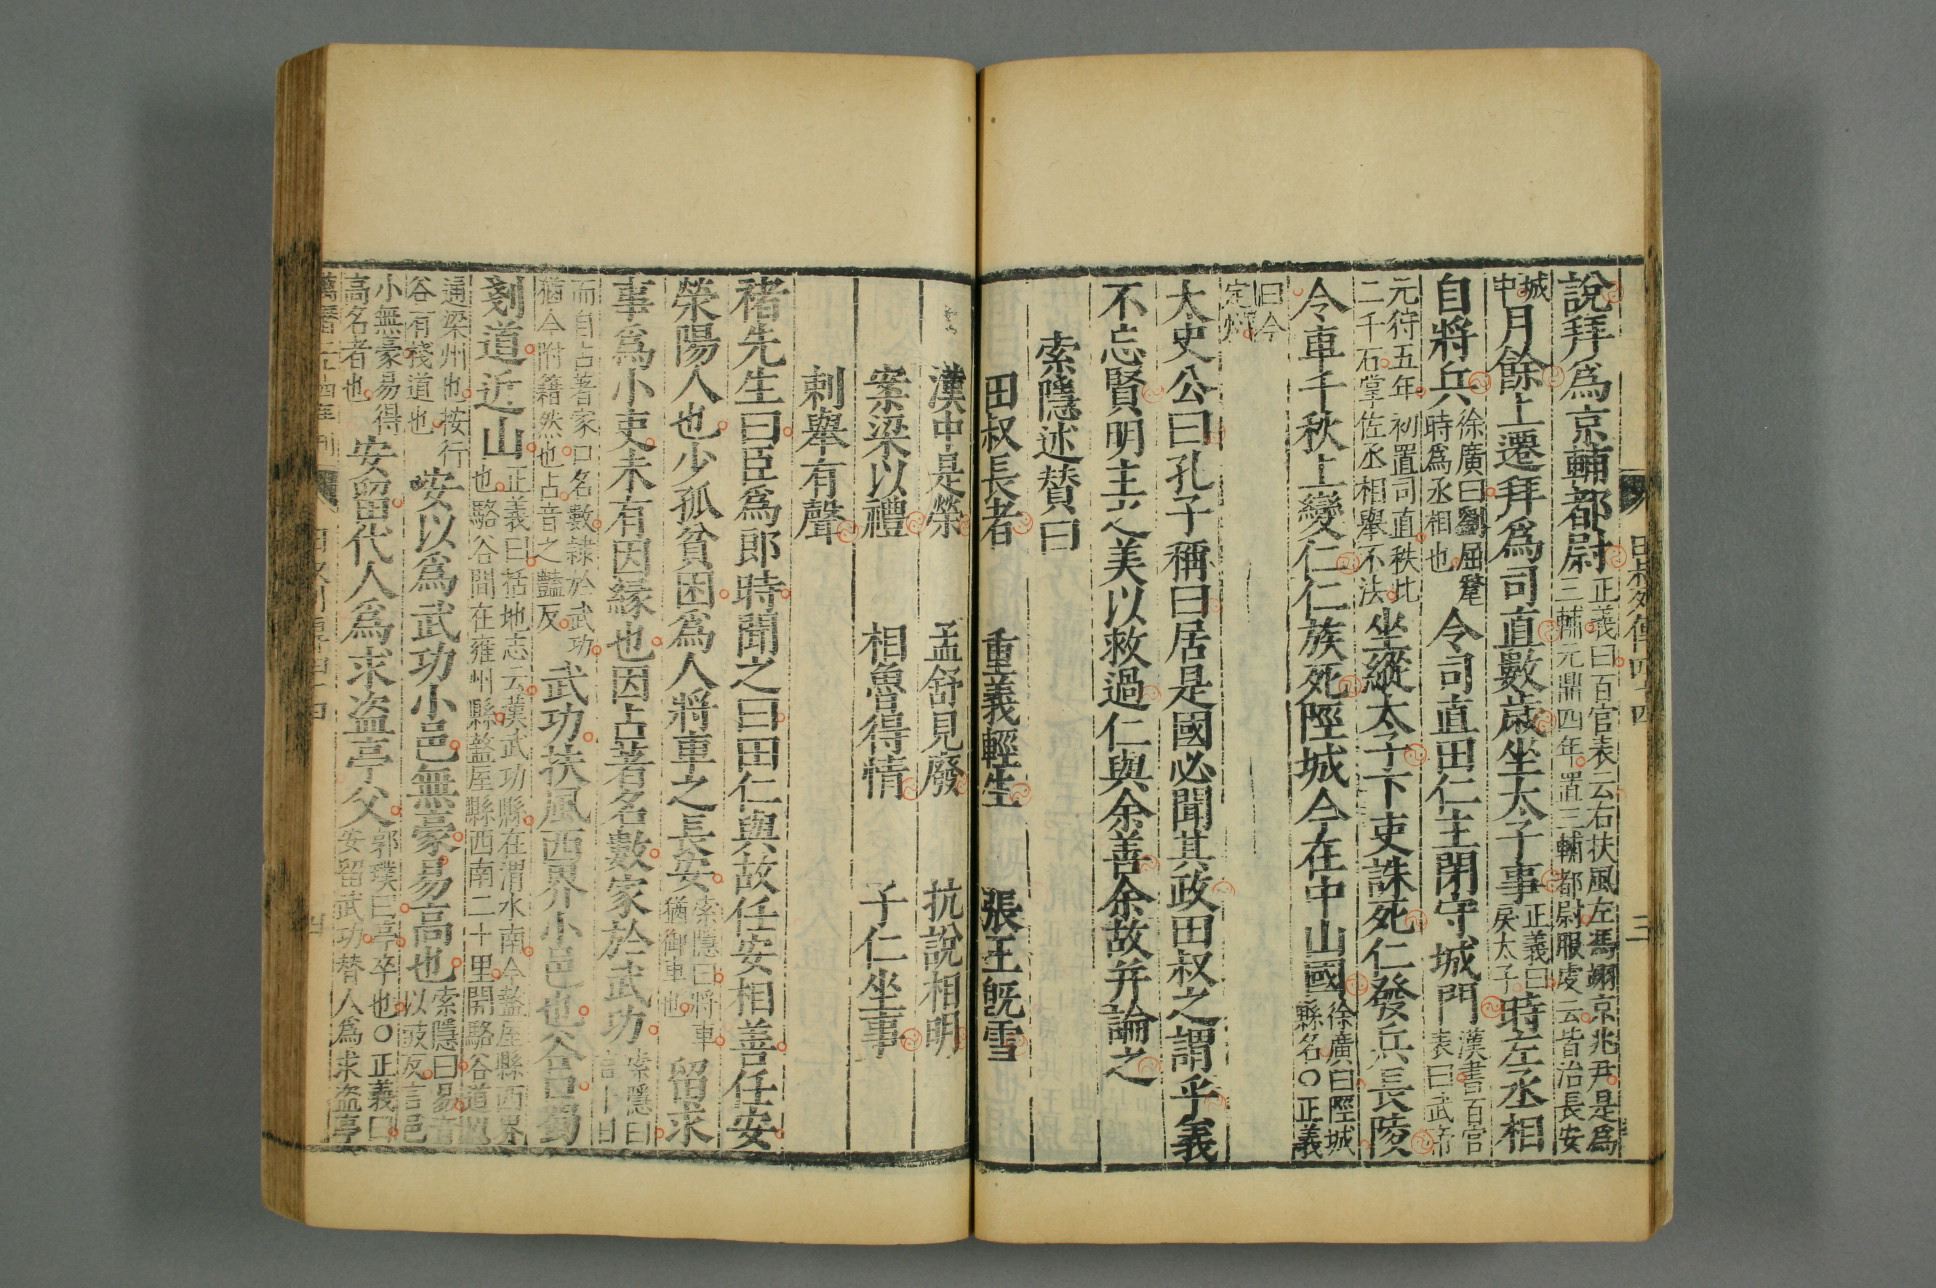 說拜爲京輔都尉正義曰百官表云右扶風左馮翊京兆尹是爲三輔元鼎四年置三輔都尉服虔云皆治長安
城中月餘上遷拜爲司直數歲坐太子事正義曰戾太子時左丞相
自將兵徐廣曰劉屈氂時爲丞相也令司直田仁主閉守城門漢書百官表曰武帝
元狩五年初置司直秩比二千石掌佐丞相舉不法坐縱太子下吏誅死仁發兵長陵
令車千秋上變仁仁族死陘城今在中山國徐廣曰陘城縣名〇正義
曰今定州
太史公曰孔子稱曰居是國必聞其政田叔之謂乎義
不忘賢明主之美以救過仁與余善余故并論之
索隱述贊曰
田叔長者 重義輕生 張王既雪
漢中是榮 孟舒見廢 抗說相明
案梁以禮 相魯得情 子仁坐事
刺舉有聲
褚先生曰臣爲郎時聞之曰田仁與故任安相善任安
滎陽人也少孤貧困爲人將車之長安索隱曰將車猶御車也留求
事爲小吏未有因緣也因占著名數家於武功索隱曰言卜日
而自占著家口名數隷於武功猶今附籍然也占音之豔反武功扶風西界小邑也谷口蜀
剗道近山正義曰括地志云漢武功縣在渭水南今盩厔縣西界也駱谷閒在雍州縣盩厔縣西南二十里開駱谷道以
通梁州也按行谷有棧道也安以爲武功小邑無豪易高也索隱曰易音以豉反言邑
小無豪易得高名者也安留代人爲求盜亭父郭璞曰亭卒也〇正義曰安留武功替人爲求盜亭